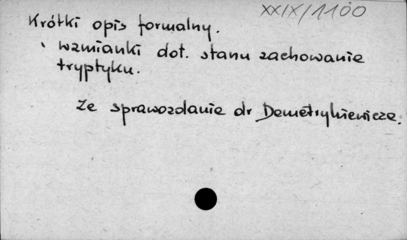 XXIX/1100
Krótki opis formalny.
wzmianki dot. stanu zachowanie
tryptyku.
Ze sprawozdanie dr Demetrykiewicza.